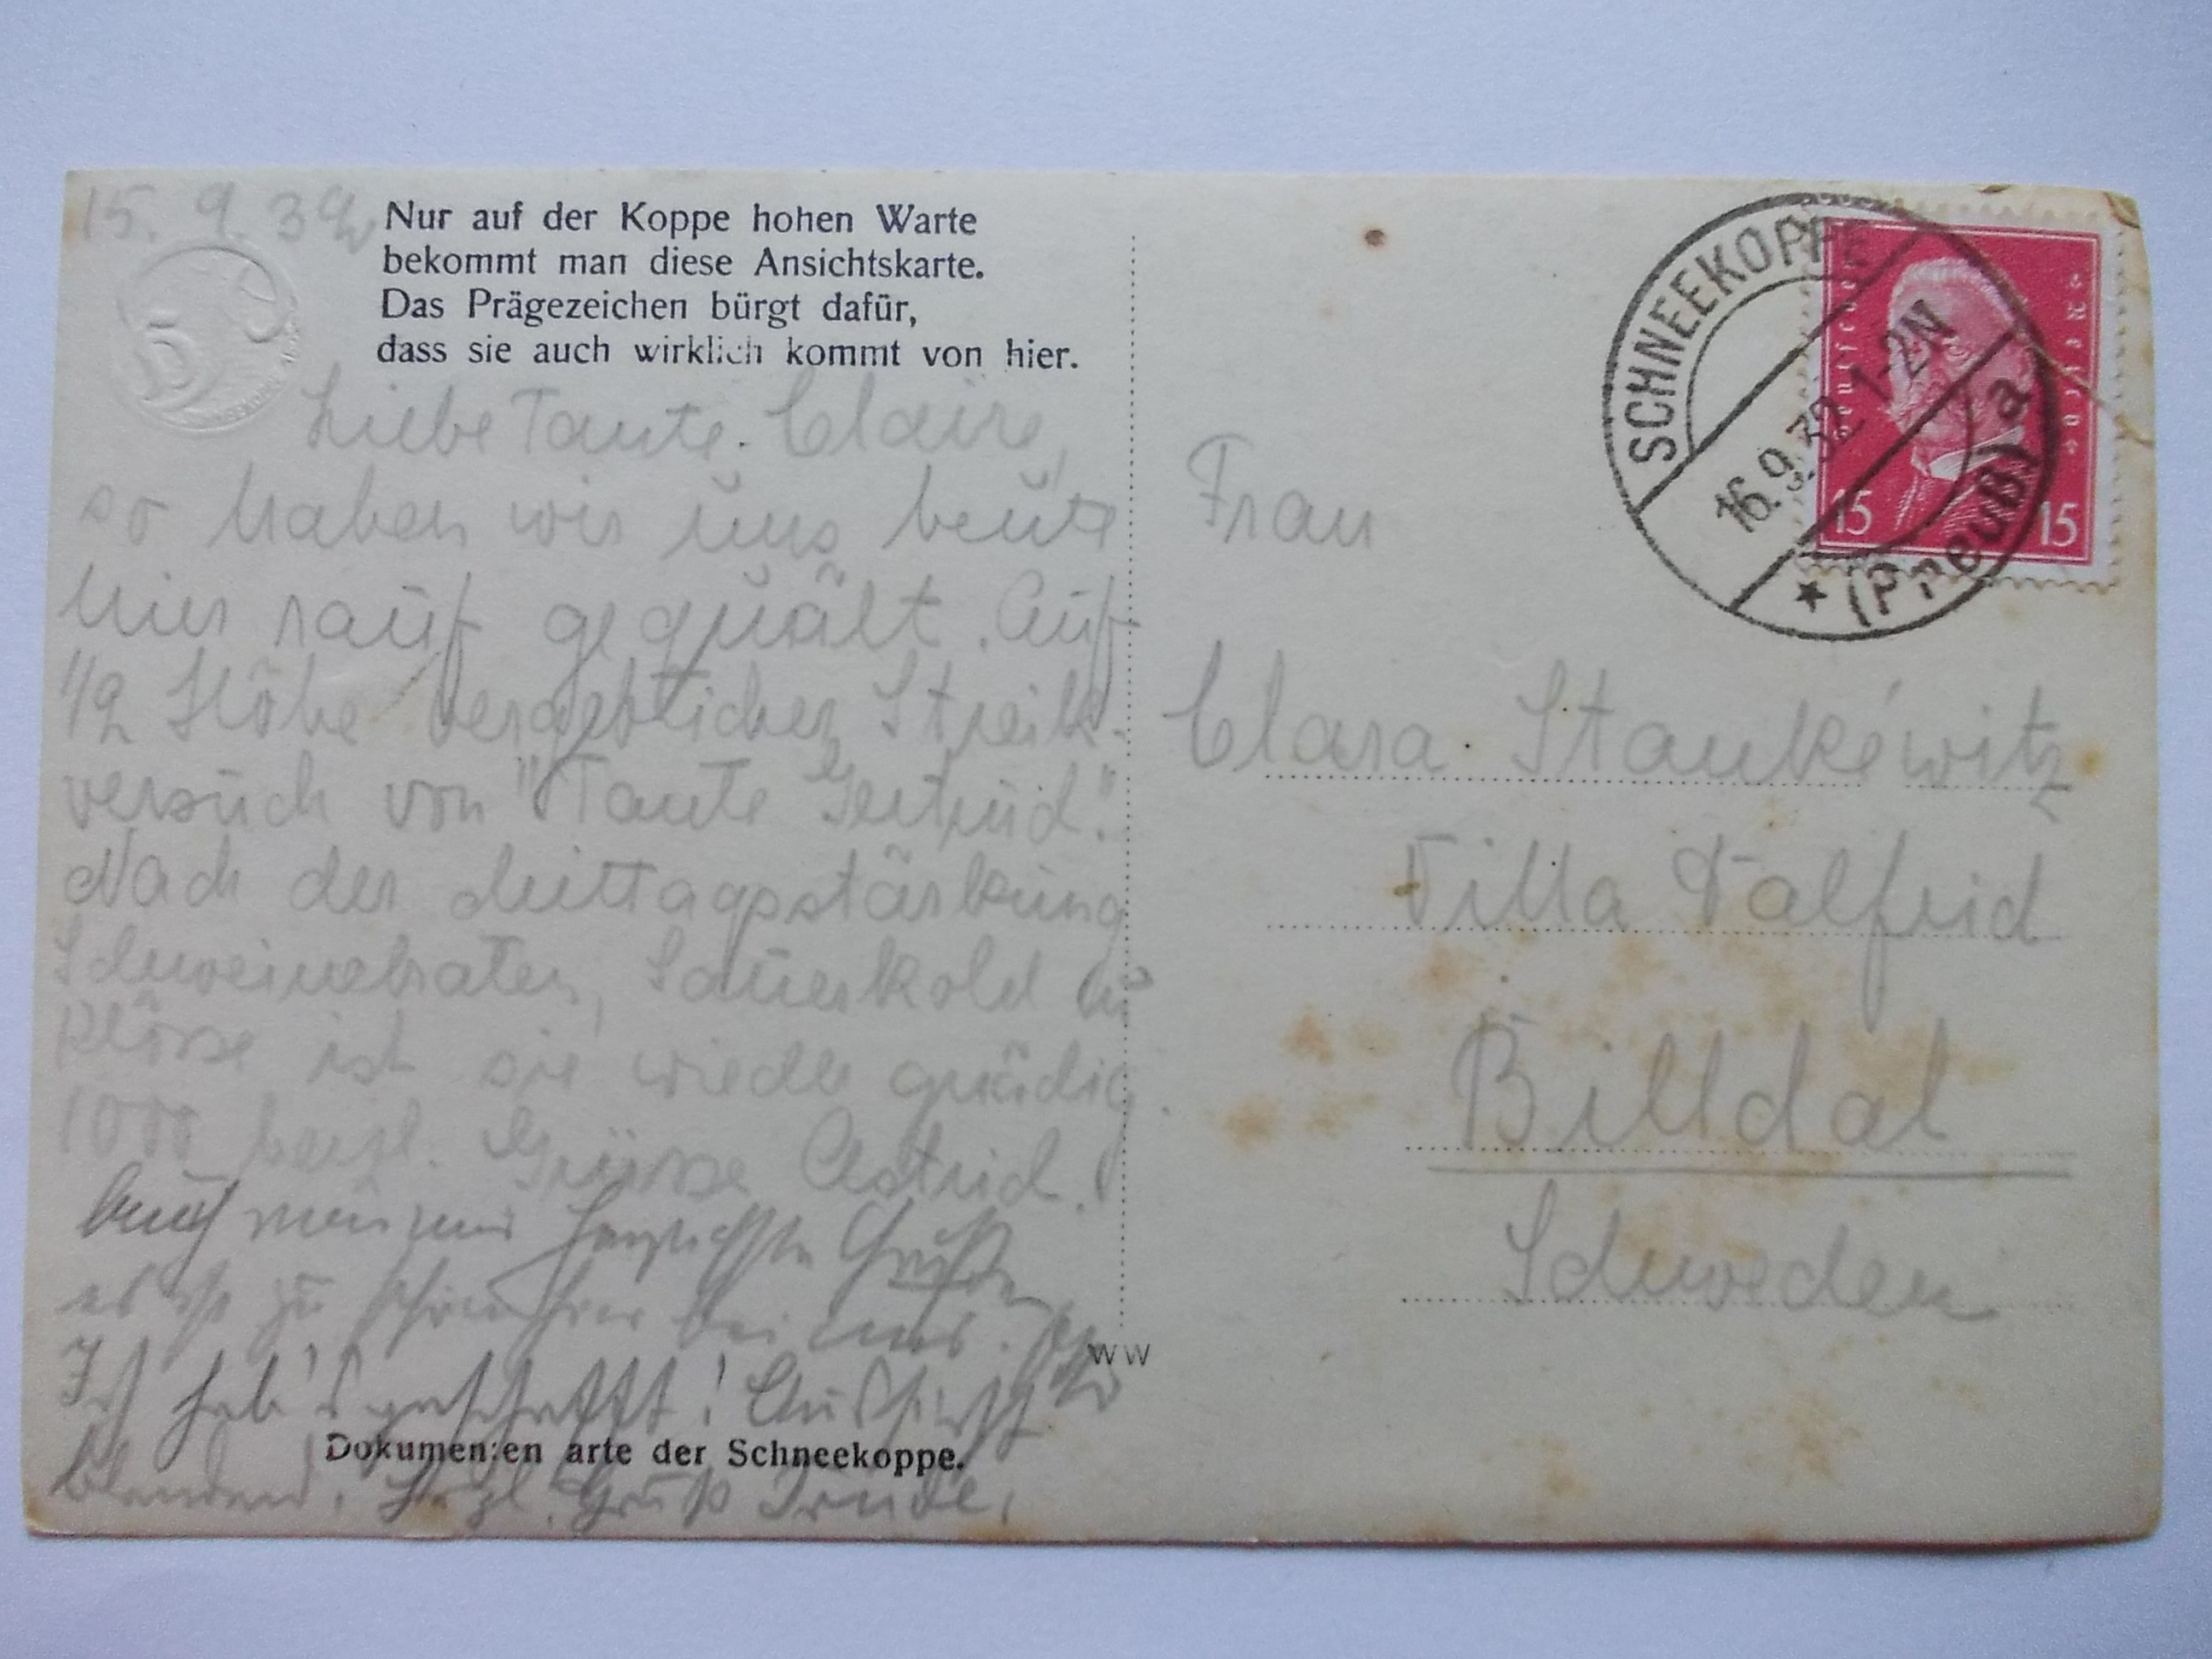 15. 9. 32
Nur auf der Koppe hohen Warte
bekommt man diese Ansichtskarte.
Das Prägezeichen bürgt dafür,
dass sie auch wirklich kommt von hier.
Liebe Tante Claire,
so haben wir uns heute
hier rauf gequält. Auf
1/2 Höhe vergeblicher Streik-
versuch von "Tante Gertrud".
Nach der Mittagsstärkung
Schweinebraten, Sauerkohl u
Klösse ist sie wieder gnädig.
1000 herzl. Grüsse Astrid.
Auch von mir herzlichste Grüße
es ist zu schön hier bei uns.
Ich hab's geschafft! Aussicht
blendend. Herzl. Gruß Trude.
Dokumenten arte der Schneekoppe.
WW
SCHNEEKOPPE
16.9.32 1-2N
* (Preuß) a
Deutsches Reich
15 15
Frau
Clara Stankéwitz
Villa Valfrid
Billdal
Schweden